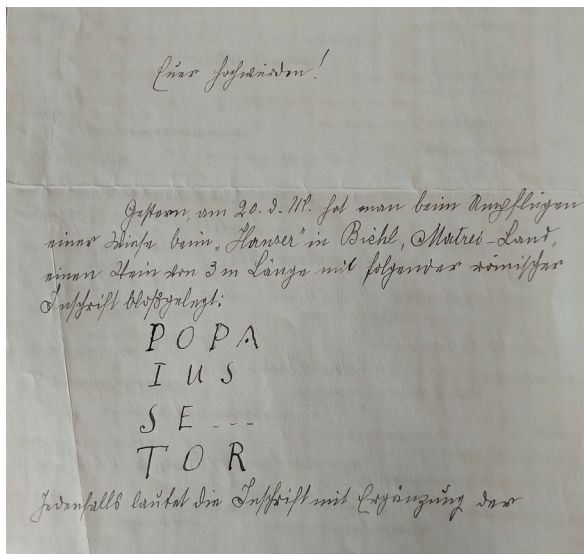 Euer Hochwürden!
Gestern, am 20. d. M. hat man beim Umpflügen
einer Wiese beim „Hanser" in Bichl, Matrei-Land,
einen Stein von 3 m Länge mit folgender römischer
Inschrift bloßgelegt:
POPA
IUS
SE ---
TOR
Jedenfalls lautet die Inschrift mit Ergänzung der